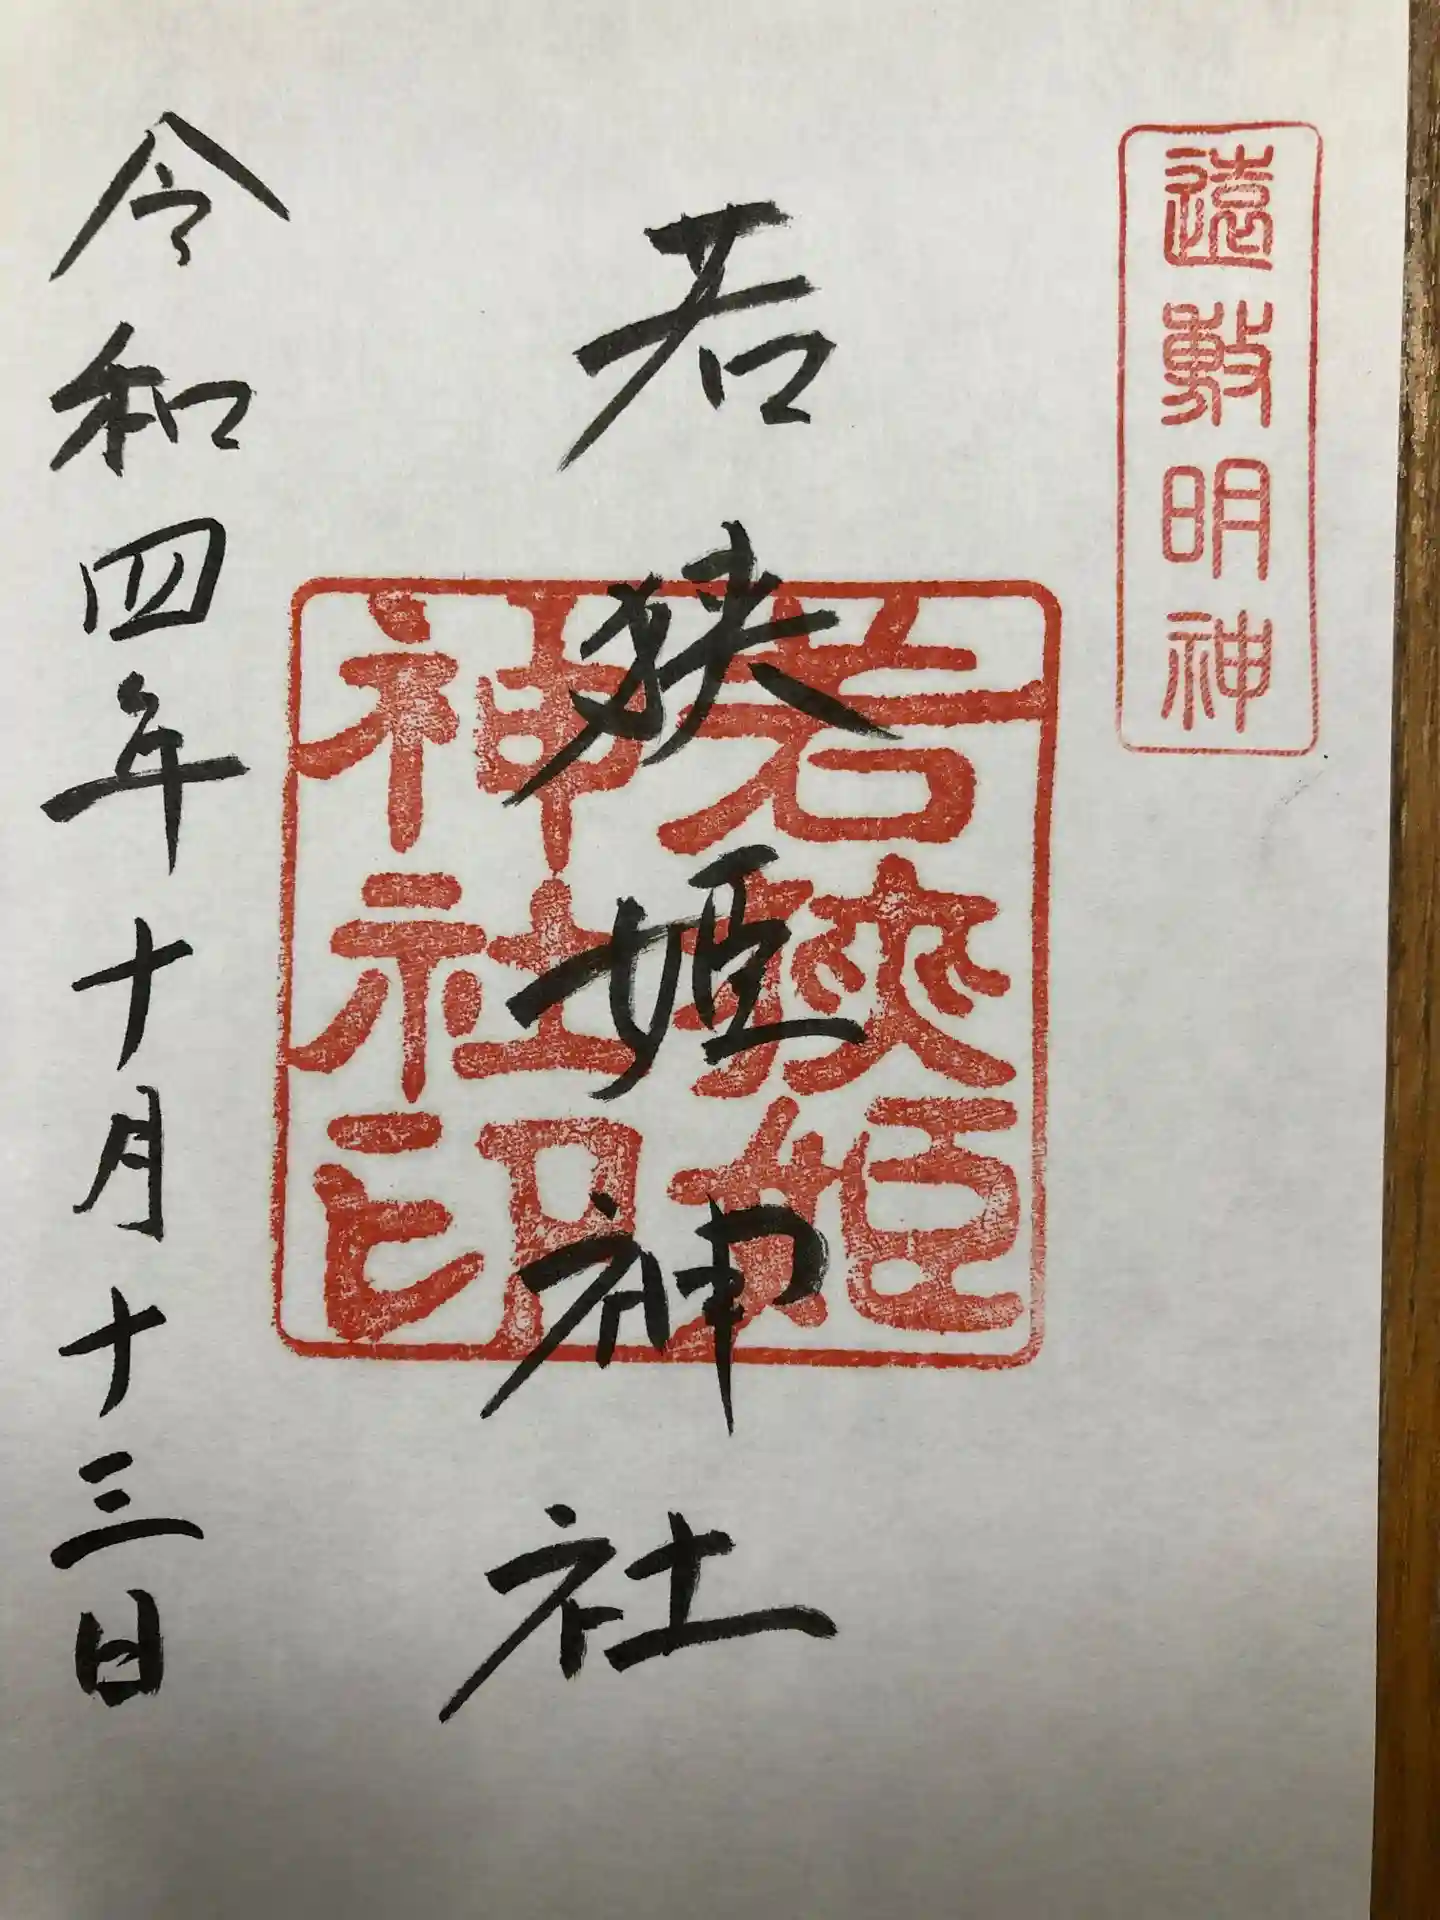 遠敷明神
若狭姫神社
若狭姫
神社印
令和四年十月十三日